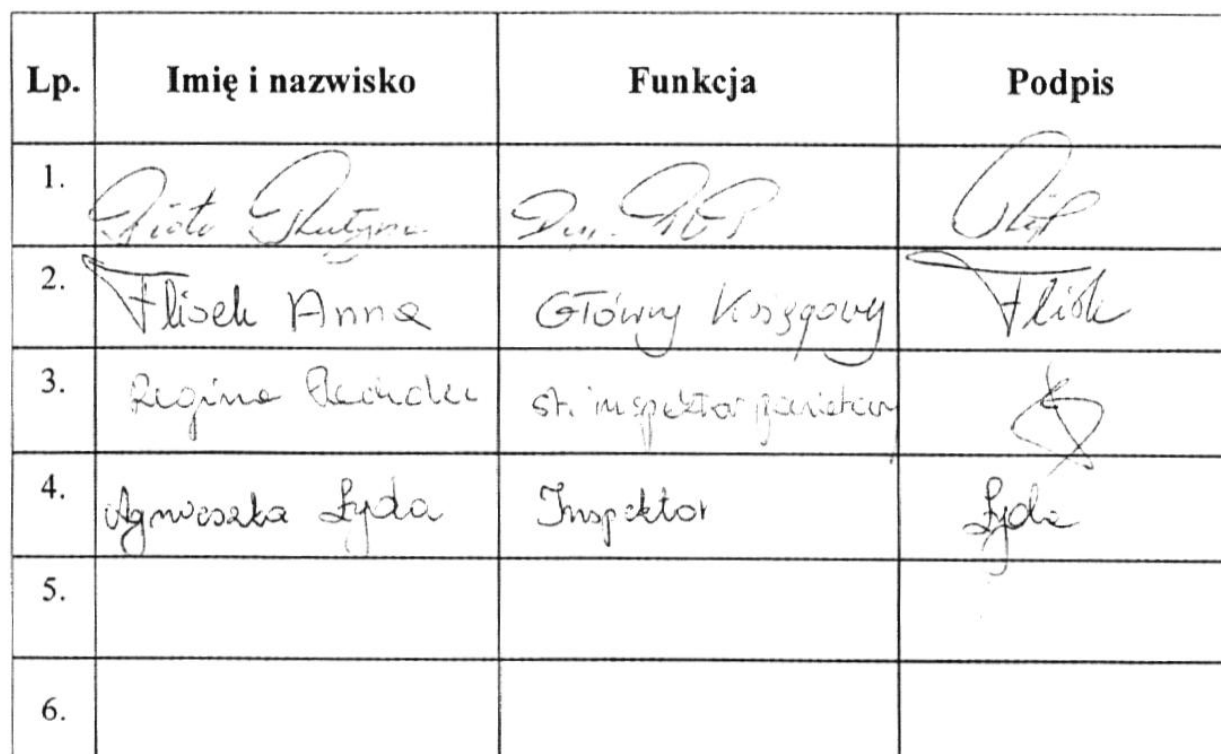 Lp. Imię i nazwisko Funkcja Podpis
1. Piotr
2. Flisek Anna Główny Księgowy Flisek
3. Regina st. inspektor
4. Agnieszka Łyda Inspektor Łyda
5.
6.